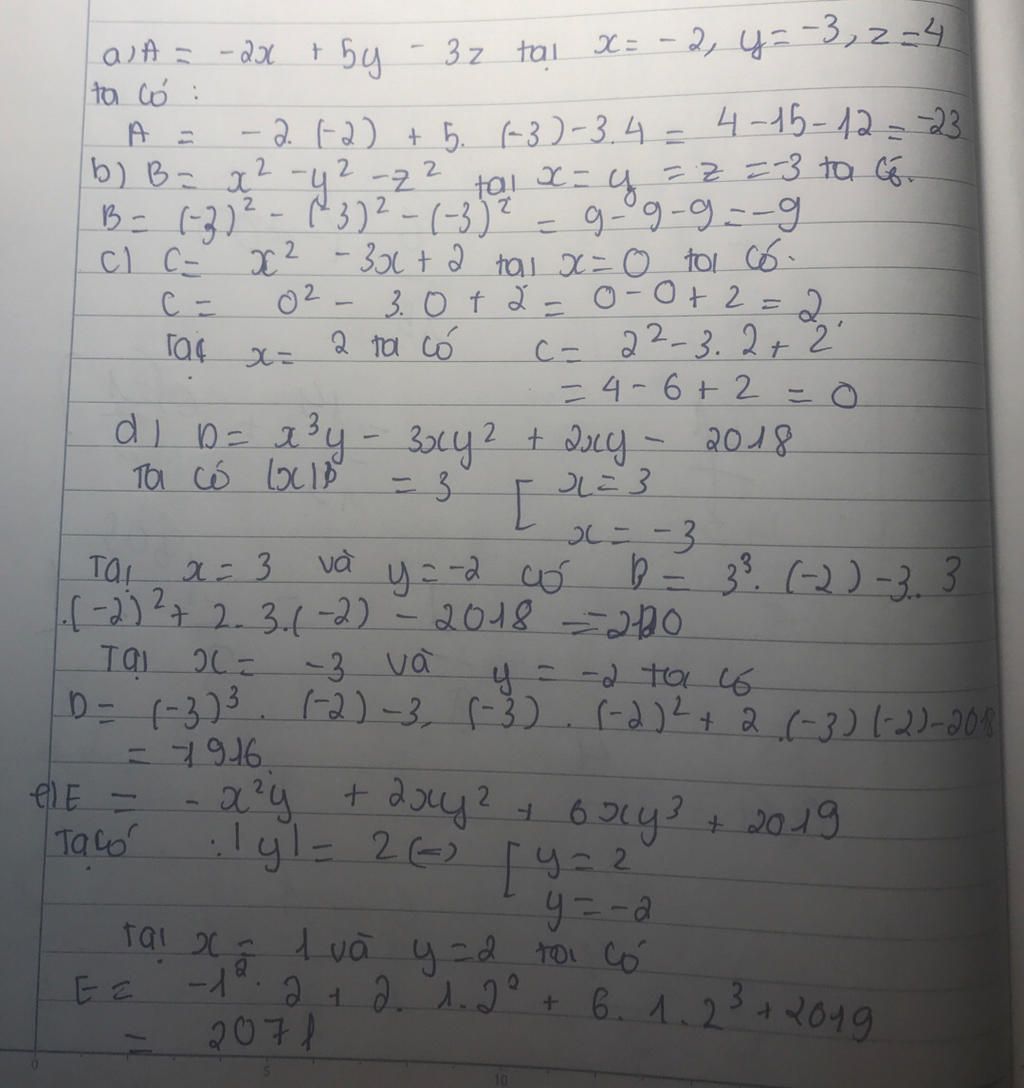 a) A = -2x + 5y - 3z tại x = -2, y = -3, z = 4
ta có :
A = -2.(-2) + 5.(-3) - 3.4 = 4 - 15 - 12 = -23
b) B = x² - y² - z² tại x = y = z = -3 ta có.
B = (-3)² - (-3)² - (-3)² = 9 - 9 - 9 = -9
c) C = x² - 3x + 2 tại x = 0 ta có.
C = 0² - 3.0 + 2 = 0 - 0 + 2 = 2.
Tại x = 2 ta có C = 2² - 3.2 + 2
= 4 - 6 + 2 = 0
d) D = x³y - 3xy² + 2xy - 2018
Ta có |x| = 3 [ x = 3
x = -3
Tại x = 3 và y = -2 có D = 3³.(-2) - 3.3
.(-2)² + 2.3.(-2) - 2018 =
Tại x = -3 và y = -2 ta có
D = (-3)³.(-2) - 3.(-3).(-2)² + 2.(-3)(-2) - 2018
= -1916.
e) E = -x²y + 2xy² + 6xy³ + 2019
Ta có : |y| = 2 (=) [ y = 2
y = -2
Tại x = 1 và y = 2 ta có
E = -1².2 + 2.1.2² + 6.1.2³ + 2019
= 2071
0 5 10